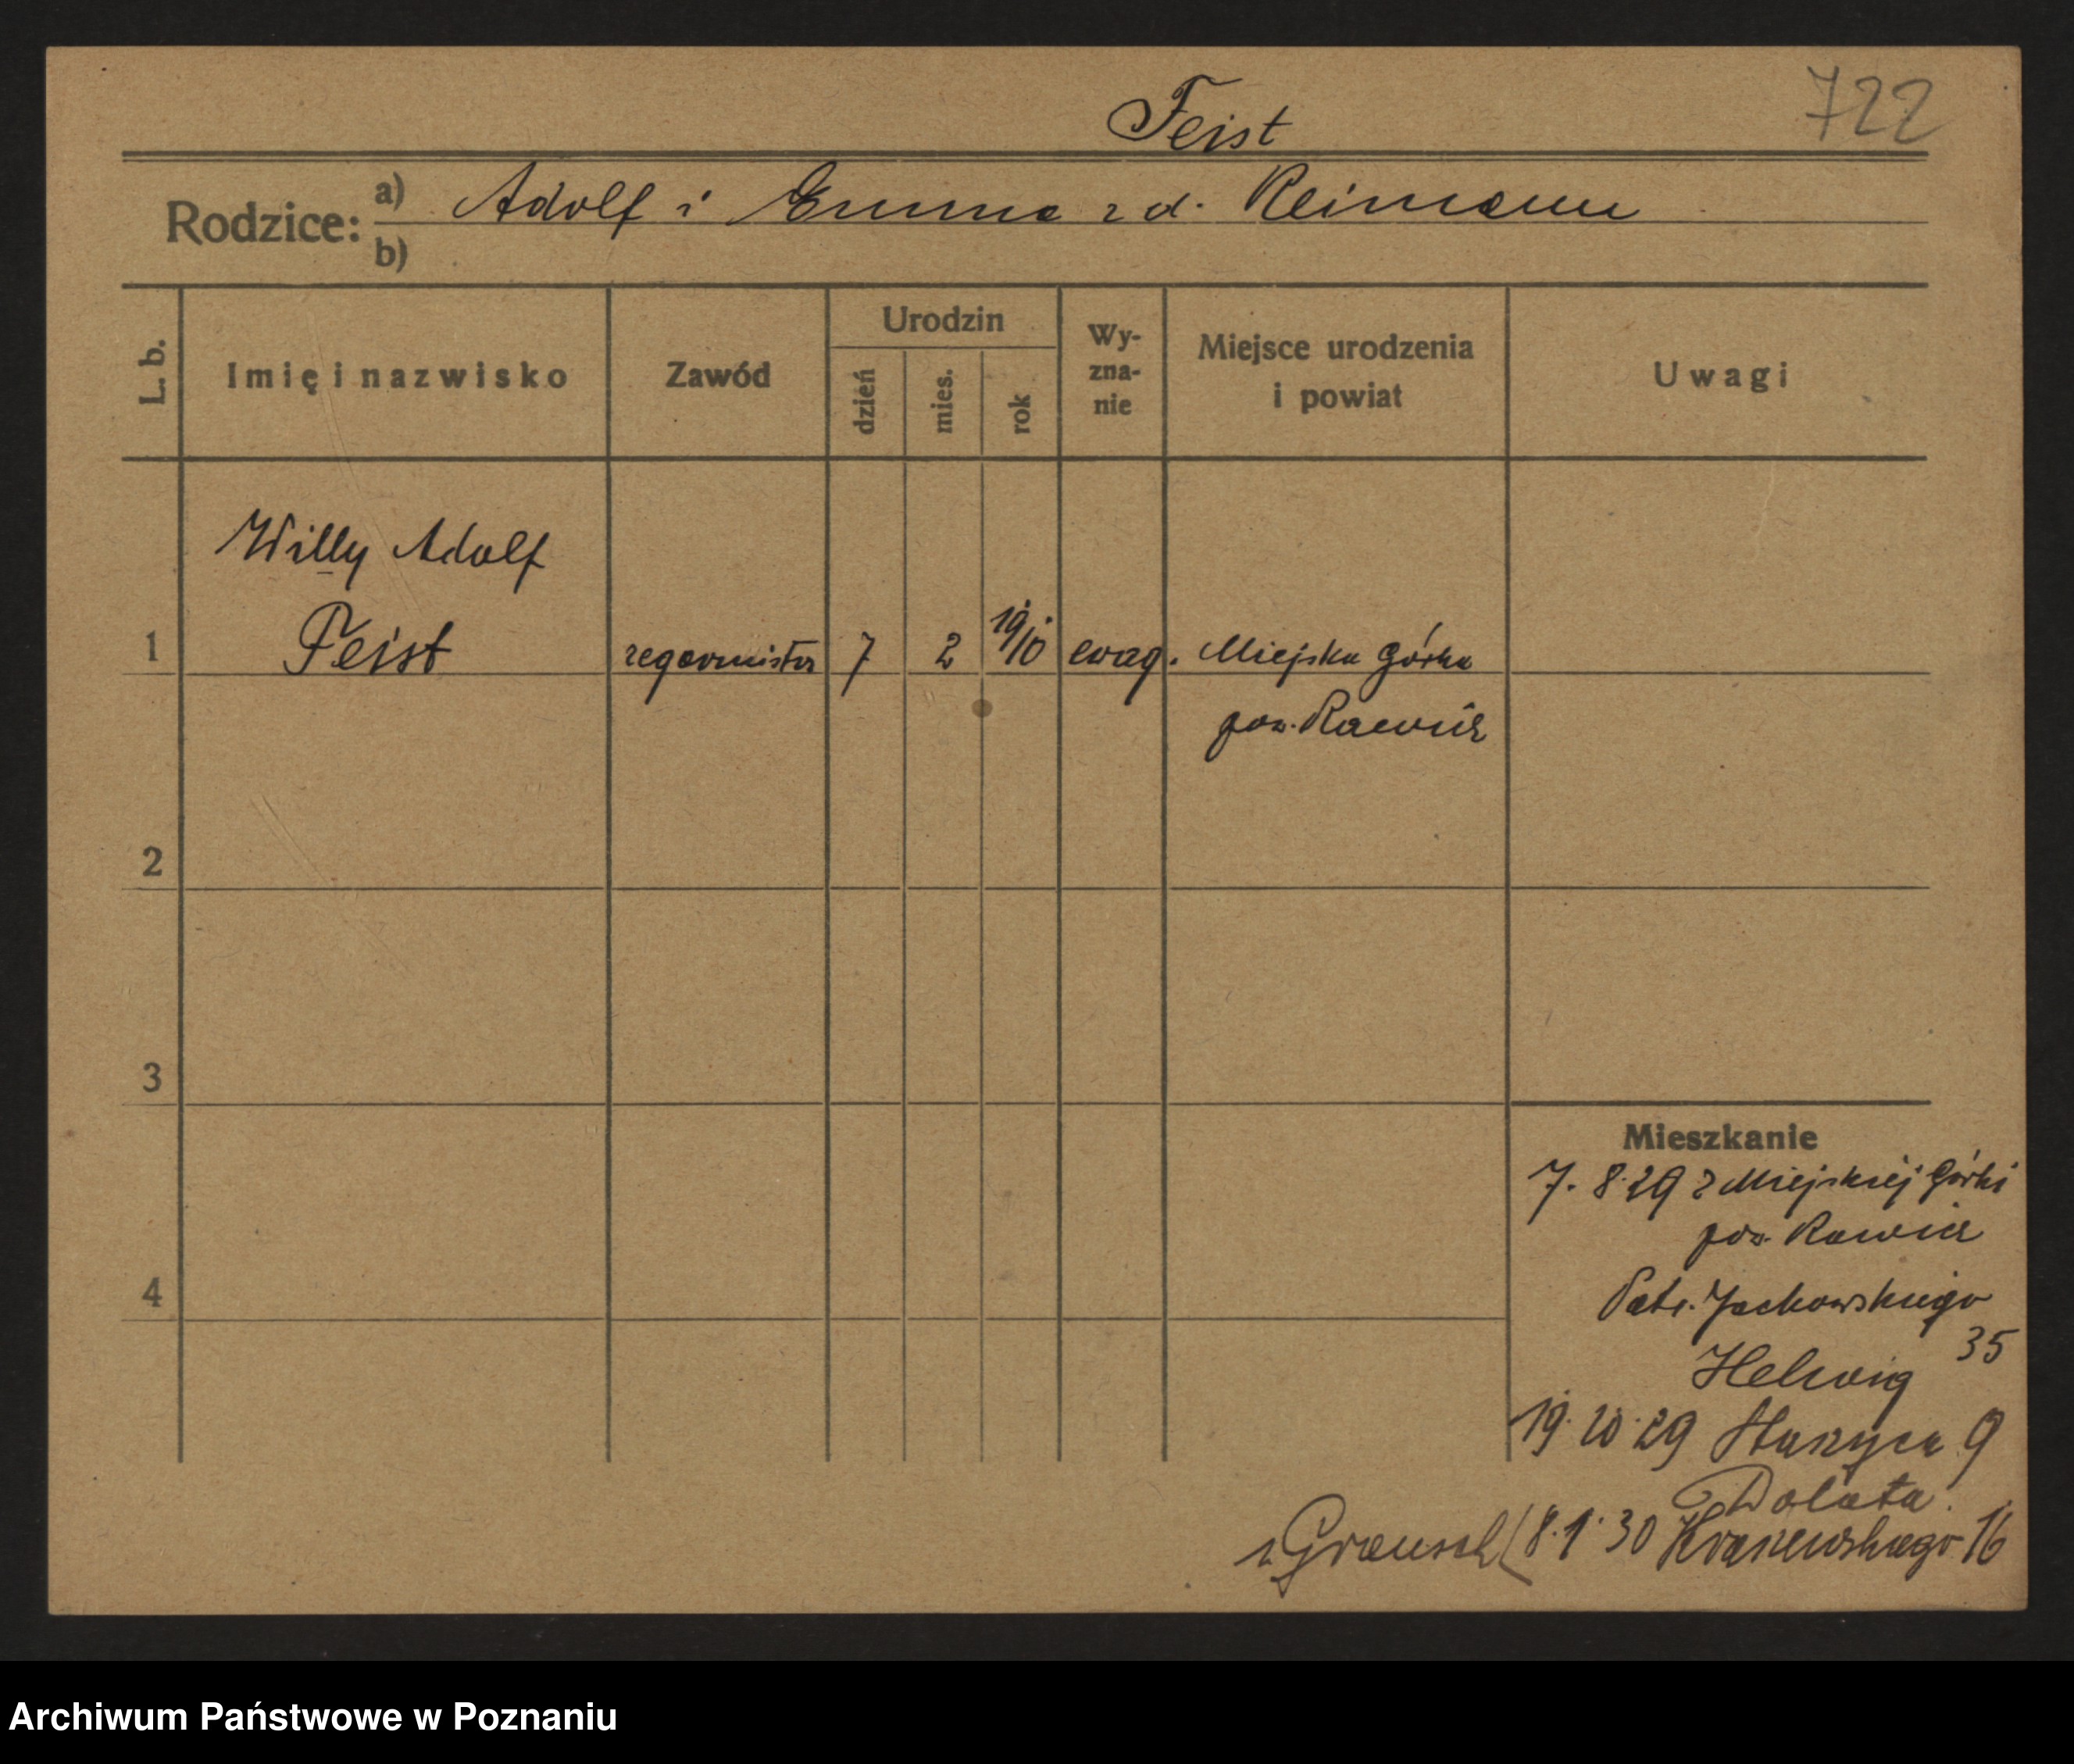 722
Feist
Rodzice: a) Adolf i Emma z d. Reimann
b)
L. b. Imię i nazwisko Zawód Urodzin dzień mies. rok Wyznanie Miejsce urodzenia i powiat Uwagi
Willy Adolf
1 Feist zegarmistrz 7 2 1910 ewag. Miejska Górka
pow. Rawicz
2
3
Mieszkanie
7. 8. 29 z Miejskiej Górki
pow. Rawicz
4
Patr. Jackowskiego
35
Helwig
19. 10. 29 9
Dolata.
8. 1. 30 16
Archiwum Państwowe w Poznaniu